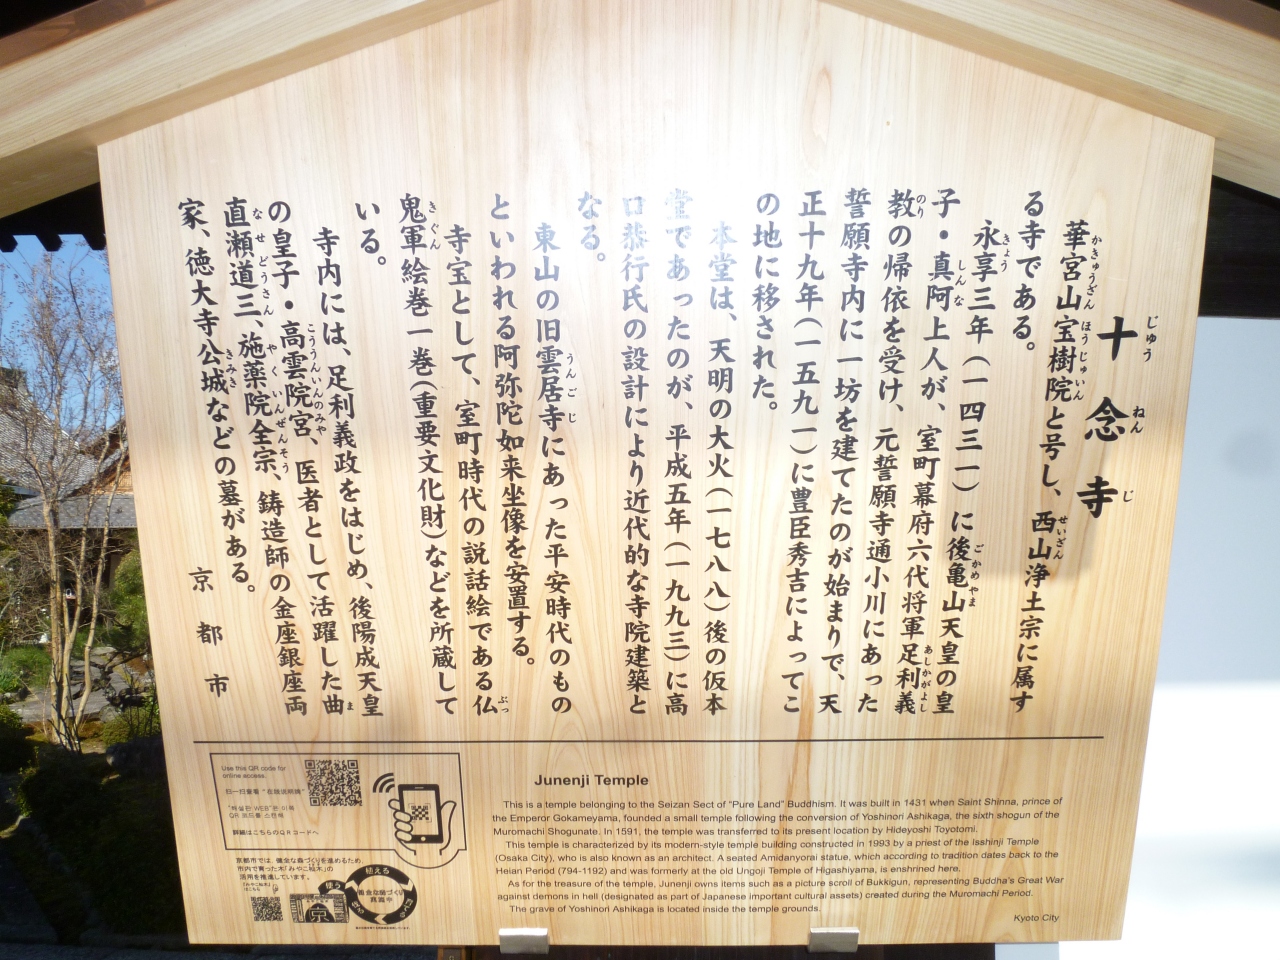 十念寺
華宮山宝樹院と号し、西山浄土宗に属す
る寺である。
永享三年(一四三一)に後亀山天皇の皇
子・真阿上人が、室町幕府六代将軍足利義
教の帰依を受け、元誓願寺通小川にあった
誓願寺内に一坊を建てたのが始まりで、天
正十九年(一五九一)に豊臣秀吉によってこ
の地に移された。
本堂は、天明の大火(一七八八)後の仮本
堂であったのが、平成五年(一九九三)に高
口恭行氏の設計により近代的な寺院建築と
なる。
東山の旧雲居寺にあった平安時代のもの
といわれる阿弥陀如来坐像を安置する。
寺宝として、室町時代の説話絵である仏
鬼軍絵巻一巻(重要文化財)などを所蔵して
いる。
寺内には、足利義政をはじめ、後陽成天皇
の皇子・高雲院宮、医者として活躍した曲
直瀬道三、施薬院全宗、鋳造師の金座銀座両
家、徳大寺公城などの墓がある。
京都市
Use this QR code for
online access.
扫一扫查看"在线说明牌"
"해설판 WEB"은 이쪽
QR 코드를 스캔해
詳細はこちらのQRコードへ
京都市では、健全な森づくりを進めるため、
市内で育った木「みやこ杣木」の
活用を推進しています。
使う
植える
健全な森づくり
京
Junenji Temple
This is a temple belonging to the Seizan Sect of "Pure Land" Buddhism. It was built in 1431 when Saint Shinna, prince of
the Emperor Gokameyama, founded a small temple following the conversion of Yoshinori Ashikaga, the sixth shogun of the
Muromachi Shogunate. In 1591, the temple was transferred to its present location by Hideyoshi Toyotomi.
This temple is characterized by its modern-style temple building constructed in 1993 by a priest of the Isshinji Temple
(Osaka City), who is also known as an architect. A seated Amidanyorai statue, which according to tradition dates back to the
Heian Period (794-1192) and was formerly at the old Ungoji Temple of Higashiyama, is enshrined here.
As for the treasure of the temple, Junenji owns items such as a picture scroll of Bukkigun, representing Buddha's Great War
against demons in hell (designated as part of Japanese important cultural assets) created during the Muromachi Period.
The grave of Yoshinori Ashikaga is located inside the temple grounds.
Kyoto City